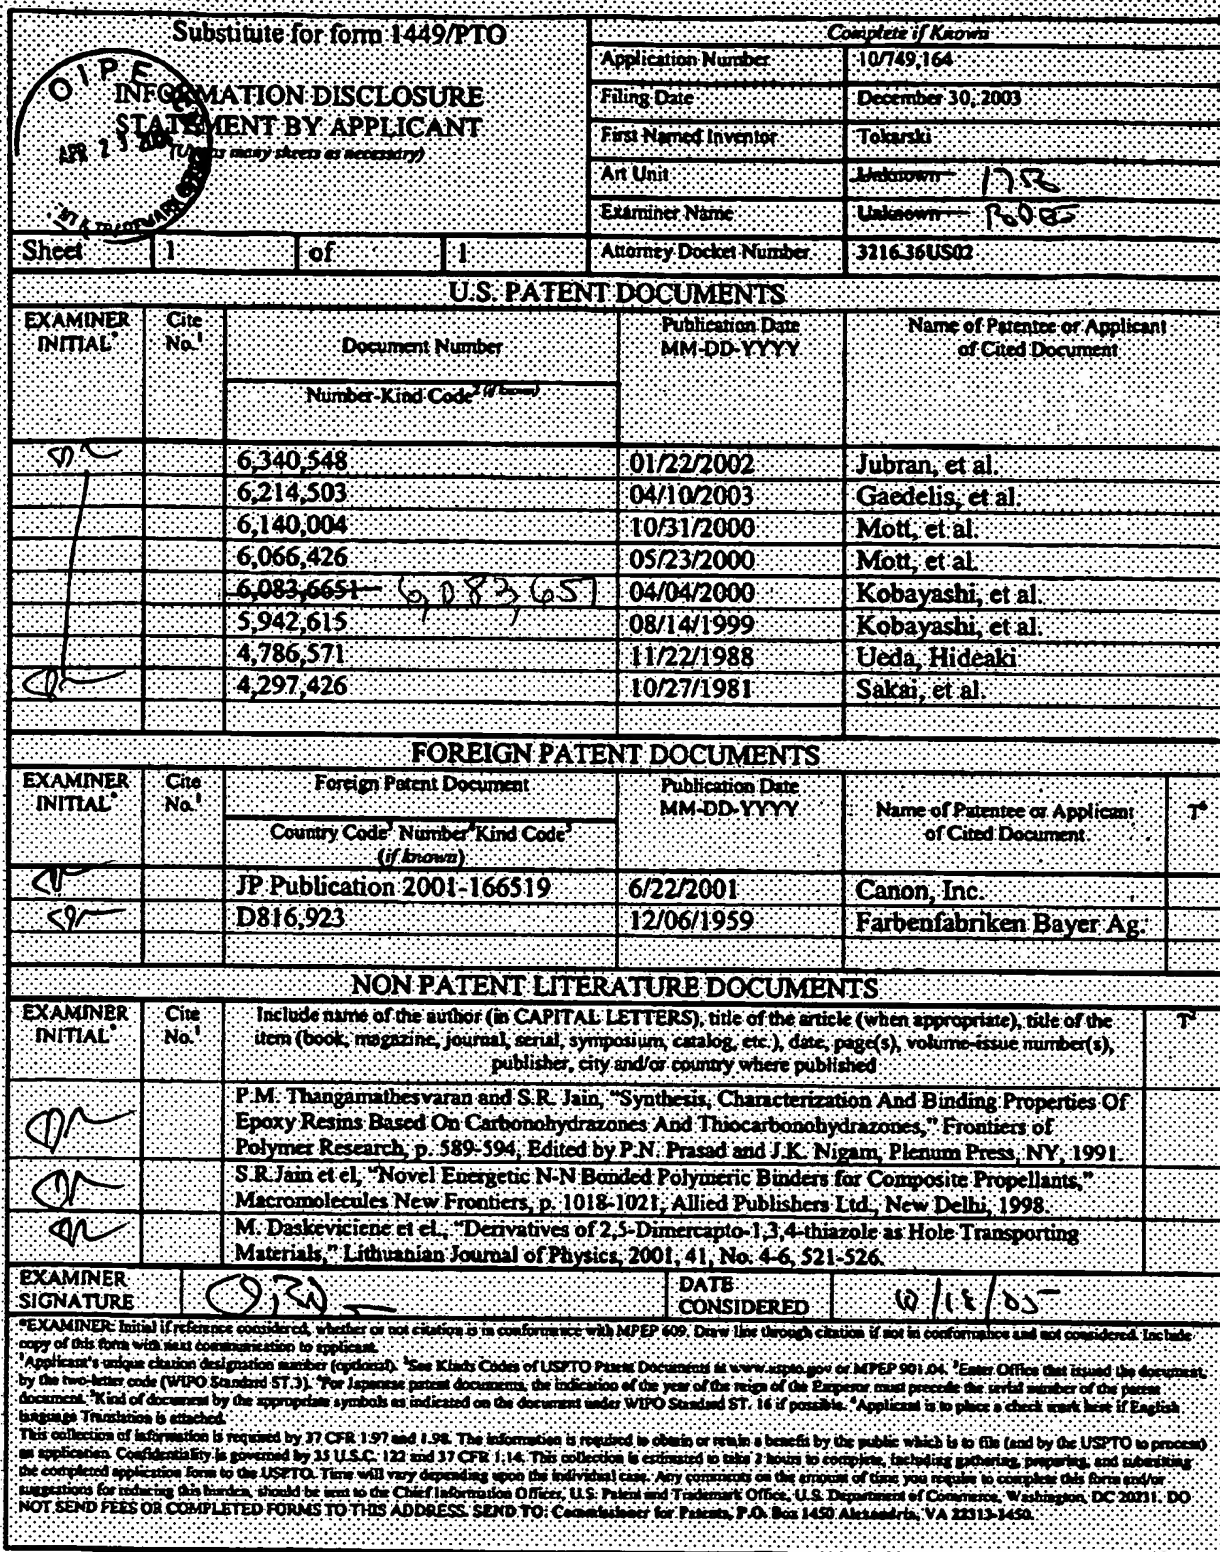 Substitute for form 1449/PTO
INFORMATION DISCLOSURE
STATEMENT BY APPLICANT
as many sheets as necessary)
OIPE
APR 2
Sheet 1 of 1
Complete if Known
Application Number 10/749,164
Filing Date December 30, 2003
First Named Inventor Tokarski
Art Unit Unknown
Examiner Name Unknown
Attorney Docket Number 3216.36US02
U.S. PATENT DOCUMENTS
EXAMINER INITIAL* Cite No.1 Document Number Publication Date MM-DD-YYYY Name of Patentee or Applicant of Cited Document
Number-Kind Code2 (if known)
6,340,548 01/22/2002 Jubran, et al.
6,214,503 04/10/2003 Gaedelis, et al.
6,140,004 10/31/2000 Mott, et al.
6,066,426 05/23/2000 Mott, et al.
6,083,6651 6,083,651 04/04/2000 Kobayashi, et al.
5,942,615 08/14/1999 Kobayashi, et al.
4,786,571 11/22/1988 Ueda, Hideaki
4,297,426 10/27/1981 Sakai, et al.
FOREIGN PATENT DOCUMENTS
EXAMINER INITIAL* Cite No.1 Foreign Patent Document Publication Date MM-DD-YYYY Name of Patentee or Applicant of Cited Document T6
Country Code3 Number4 Kind Code5
(if known)
JP Publication 2001-166519 6/22/2001 Canon, Inc.
D816,923 12/06/1959 Farbenfabriken Bayer Ag.
NON PATENT LITERATURE DOCUMENTS
EXAMINER INITIAL* Cite No.1 Include name of the author (in CAPITAL LETTERS), title of the article (when appropriate), title of the
item (book, magazine, journal, serial, symposium, catalog, etc.), date, page(s), volume-issue number(s),
publisher, city and/or country where published
P.M. Thangamathesvaran and S.R. Jain, "Synthesis, Characterization And Binding Properties Of
Epoxy Resins Based On Carbonohydrazones And Thiocarbonohydrazones," Frontiers of
Polymer Research, p. 589-594, Edited by P.N. Prasad and J.K. Nigam, Plenum Press, NY, 1991.
S.R.Jain et el, "Novel Energetic N-N Bonded Polymeric Binders for Composite Propellants,"
Macromolecules New Frontiers, p. 1018-1021, Allied Publishers Ltd., New Delhi, 1998.
M. Daskeviciene et el., "Derivatives of 2,5-Dimercapto-1,3,4-thiazole as Hole Transporting
Materials," Lithuanian Journal of Physics, 2001, 41, No. 4-6, 521-526.
EXAMINER SIGNATURE DATE CONSIDERED 10/18/05
*EXAMINER: Initial if reference considered, whether or not citation is in conformance with MPEP 609. Draw line through citation if not in conformance and not considered. Include
copy of this form with next communication to applicant.
1Applicant's unique citation designation number (optional). 2See Kinds Codes of USPTO Patent Documents at www.uspto.gov or MPEP 901.04. 3Enter Office that issued the document,
by the two-letter code (WIPO Standard ST.3). 4For Japanese patent documents, the indication of the year of the reign of the Emperor must precede the serial number of the patent
document. 5Kind of document by the appropriate symbols as indicated on the document under WIPO Standard ST. 16 if possible. 6Applicant is to place a check mark here if English
language Translation is attached.
This collection of information is required by 37 CFR 1.97 and 1.98. The information is required to obtain or retain a benefit by the public which is to file (and by the USPTO to process)
an application. Confidentiality is governed by 35 U.S.C. 122 and 37 CFR 1.14. This collection is estimated to take 2 hours to complete, including gathering, preparing, and submitting
the completed application form to the USPTO. Time will vary depending upon the individual case. Any comments on the amount of time you require to complete this form and/or
suggestions for reducing this burden, should be sent to the Chief Information Officer, U.S. Patent and Trademark Office, U.S. Department of Commerce, Washington, DC 20231. DO
NOT SEND FEES OR COMPLETED FORMS TO THIS ADDRESS. SEND TO: Commissioner for Patents, P.O. Box 1450 Alexandria, VA 22313-1450.